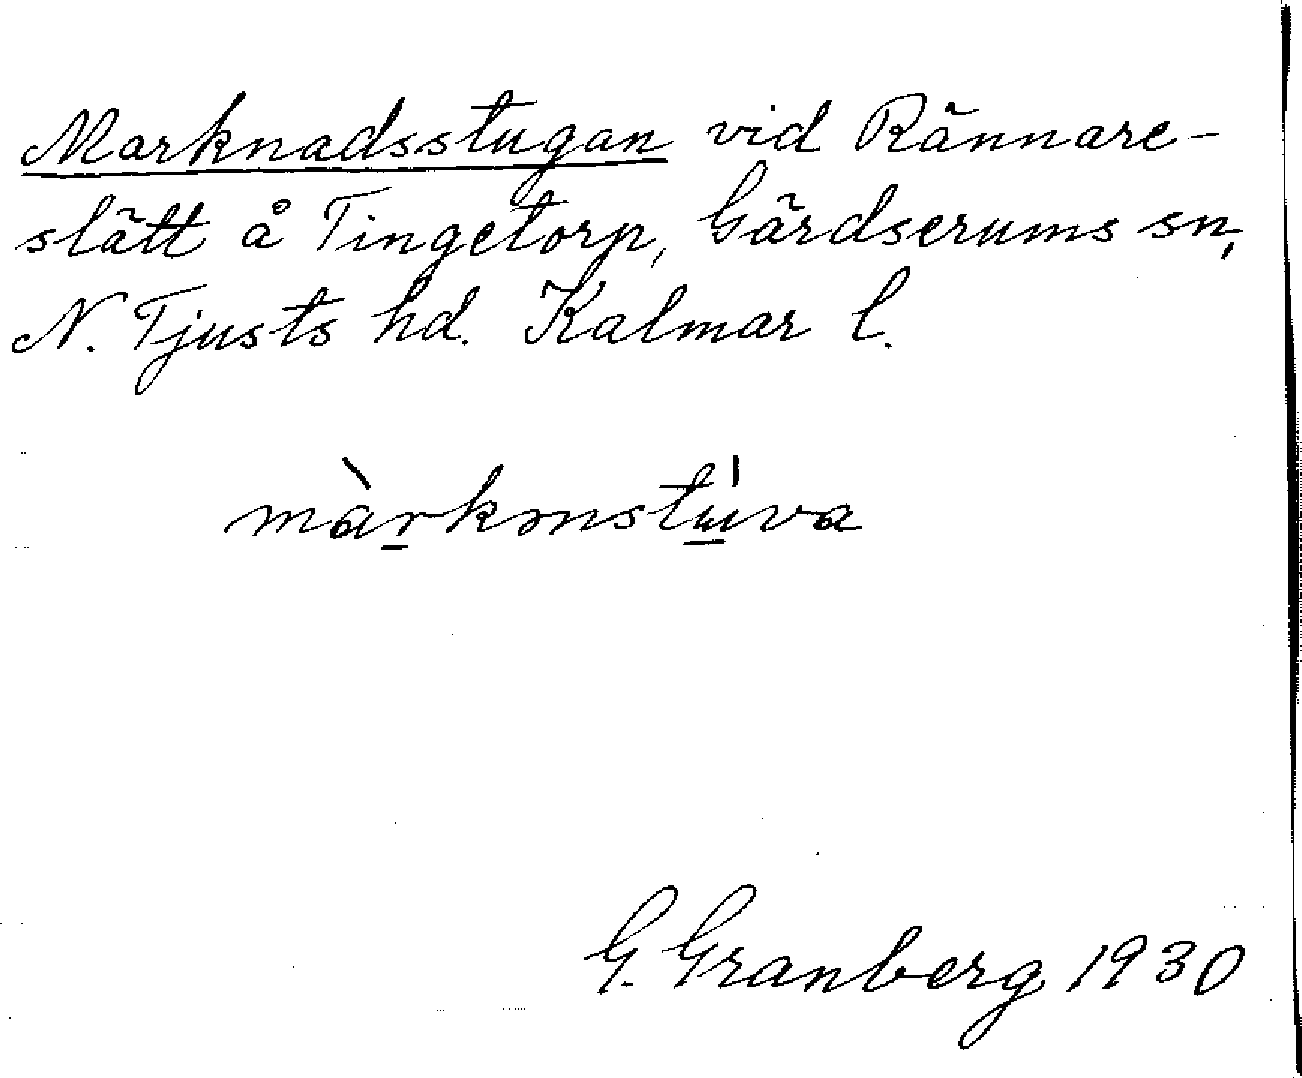 Marknadsstugan vid Rännare-
slätt å Tingetorp, Gärdserums sn,
N. Tjusts hd. Kalmar l.
màrkmstu̍va
G. Granberg 1930